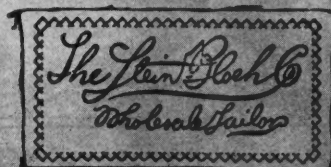 The Stein-Bloch Co
Wholesale Tailors